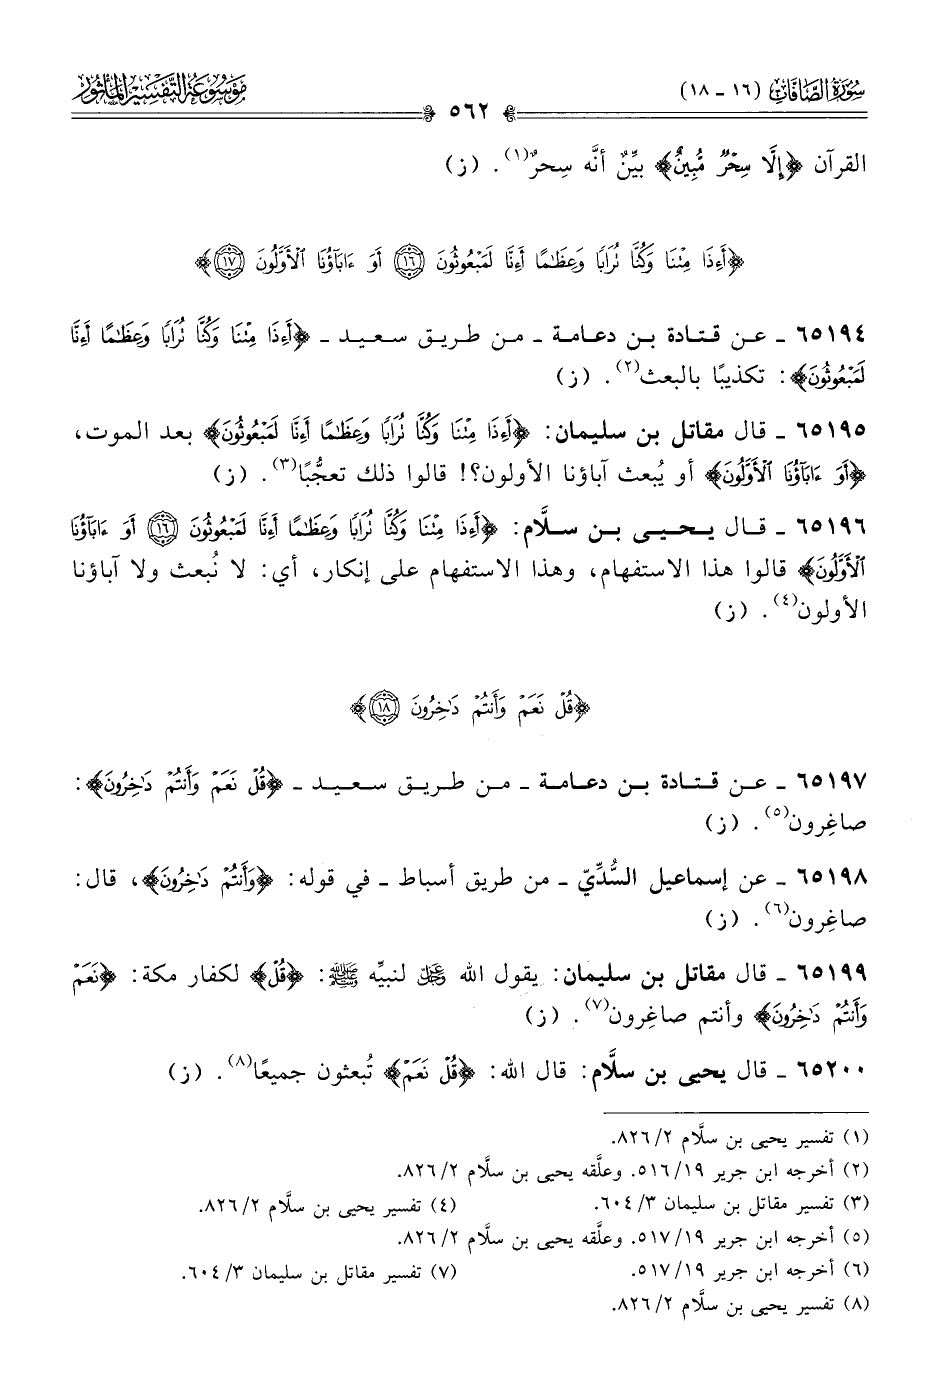 سورة الصافات (١٦ - ١٨)
٥٦٢
موسوعة التفسير المأثور
القرآن ﴿إِلَّا سِحْرٌ مُّبِينٌ﴾ بيِّنٌ أنَّه سِحرٌ(١). (ز)
﴿أَءِذَا مِتْنَا وَكُنَّا تُرَابًا وَعِظَٰمًا أَءِنَّا لَمَبْعُوثُونَ ١٦ أَوَ ءَابَآؤُنَا ٱلْأَوَّلُونَ ١٧﴾
٦٥١٩٤ ـ عن قتادة بن دعامة ـ من طريق سعيد ـ ﴿أَءِذَا مِتْنَا وَكُنَّا تُرَابًا وَعِظَٰمًا أَءِنَّا
لَمَبْعُوثُونَ﴾: تكذيبًا بالبعث(٢). (ز)
٦٥١٩٥ ـ قال مقاتل بن سليمان: ﴿أَءِذَا مِتْنَا وَكُنَّا تُرَابًا وَعِظَٰمًا أَءِنَّا لَمَبْعُوثُونَ﴾ بعد الموت،
﴿أَوَ ءَابَآؤُنَا ٱلْأَوَّلُونَ﴾ أو يُبعث آباؤنا الأولون؟! قالوا ذلك تعجُّبًا(٣). (ز)
٦٥١٩٦ ـ قال يحيى بن سلَّام: ﴿أَءِذَا مِتْنَا وَكُنَّا تُرَابًا وَعِظَٰمًا أَءِنَّا لَمَبْعُوثُونَ ١٦ أَوَ ءَابَآؤُنَا
ٱلْأَوَّلُونَ﴾ قالوا هذا الاستفهام، وهذا الاستفهام على إنكار، أي: لا نُبعث ولا آباؤنا
الأولون(٤). (ز)
﴿قُلْ نَعَمْ وَأَنتُمْ دَٰخِرُونَ ١٨﴾
٦٥١٩٧ ـ عن قتادة بن دعامة ـ من طريق سعيد ـ ﴿قُلْ نَعَمْ وَأَنتُمْ دَٰخِرُونَ﴾:
صاغِرون(٥). (ز)
٦٥١٩٨ ـ عن إسماعيل السُّدِّيّ ـ من طريق أسباط ـ في قوله: ﴿وَأَنتُمْ دَٰخِرُونَ﴾، قال:
صاغِرون(٦). (ز)
٦٥١٩٩ ـ قال مقاتل بن سليمان: يقول الله ﷿ لنبيِّه ﷺ: ﴿قُلْ﴾ لكفار مكة: ﴿نَعَمْ
وَأَنتُمْ دَٰخِرُونَ﴾ وأنتم صاغِرون(٧). (ز)
٦٥٢٠٠ ـ قال يحيى بن سلَّام: قال الله: ﴿قُلْ نَعَمْ﴾ تُبعثون جميعًا(٨). (ز)
(١) تفسير يحيى بن سلَّام ٨٢٦/٢.
(٢) أخرجه ابن جرير ٥١٦/١٩. وعلَّقه يحيى بن سلَّام ٨٢٦/٢.
(٣) تفسير مقاتل بن سليمان ٦٠٤/٣. (٤) تفسير يحيى بن سلَّام ٨٢٦/٢.
(٥) أخرجه ابن جرير ٥١٧/١٩. وعلَّقه يحيى بن سلَّام ٨٢٦/٢.
(٦) أخرجه ابن جرير ٥١٧/١٩. (٧) تفسير مقاتل بن سليمان ٦٠٤/٣.
(٨) تفسير يحيى بن سلَّام ٨٢٦/٢.